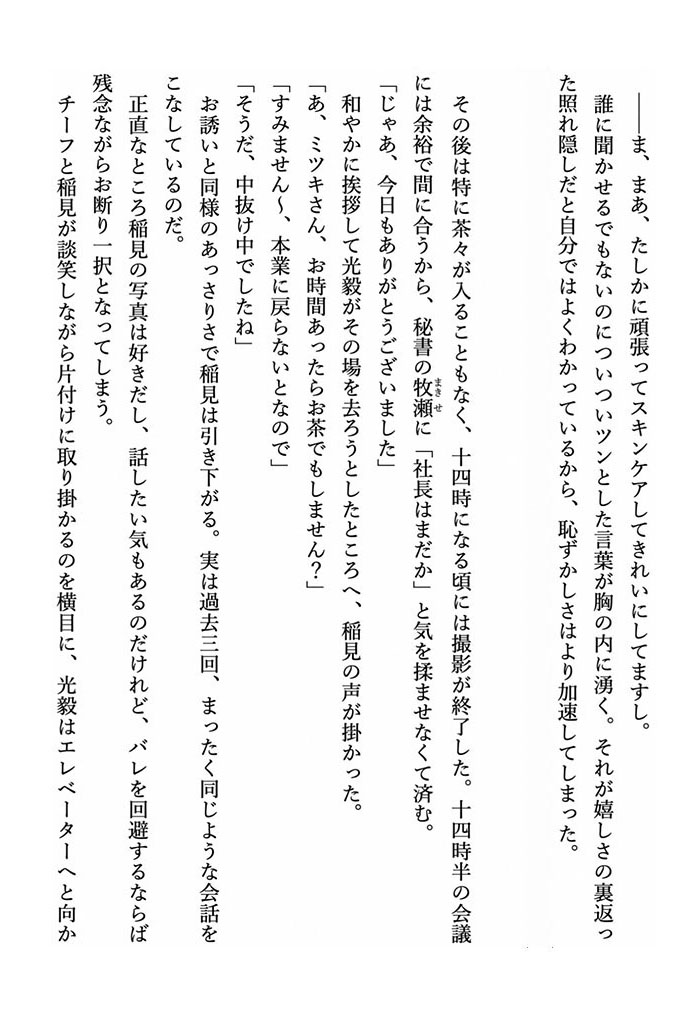 ――ま、まあ、たしかに頑張ってスキンケアしてきれいにしてますし。
誰に聞かせるでもないのについついツンとした言葉が胸の内に湧く。それが嬉しさの裏返っ
た照れ隠しだと自分ではよくわかっているから、恥ずかしさはより加速してしまった。
その後は特に茶々が入ることもなく、十四時になる頃には撮影が終了した。十四時半の会議
には余裕で間に合うから、秘書の牧瀬に「社長はまだか」と気を揉ませなくて済む。
まきせ
「じゃあ、今日もありがとうございました」
和やかに挨拶して光毅がその場を去ろうとしたところへ、稲見の声が掛かった。
「あ、ミツキさん、お時間あったらお茶でもしません？」
「すみません～、本業に戻らないとなので」
「そうだ、中抜け中でしたね」
お誘いと同様のあっさりさで稲見は引き下がる。実は過去三回、まったく同じような会話を
こなしているのだ。
正直なところ稲見の写真は好きだし、話したい気もあるのだけれど、バレを回避するならば
残念ながらお断り一択となってしまう。
チーフと稲見が談笑しながら片付けに取り掛かるのを横目に、光毅はエレベーターへと向か